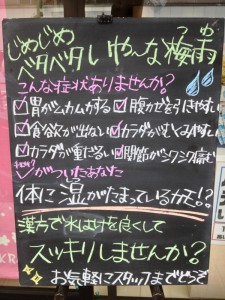 じめじめ
ベタベタしいや〜な梅雨
ツユ
こんな症状ありませんか?
胃がムカムカする 腹かせ引きやすい
食欲が出ない カラダがむくみやすい
カラダが重だるい 関節がシクシク痛む
がついたあなた
体に湿がたまっているカモ!?
漢方で水はけを良くして
スッキリしませんか?
お気軽にスタッフまでどうぞ